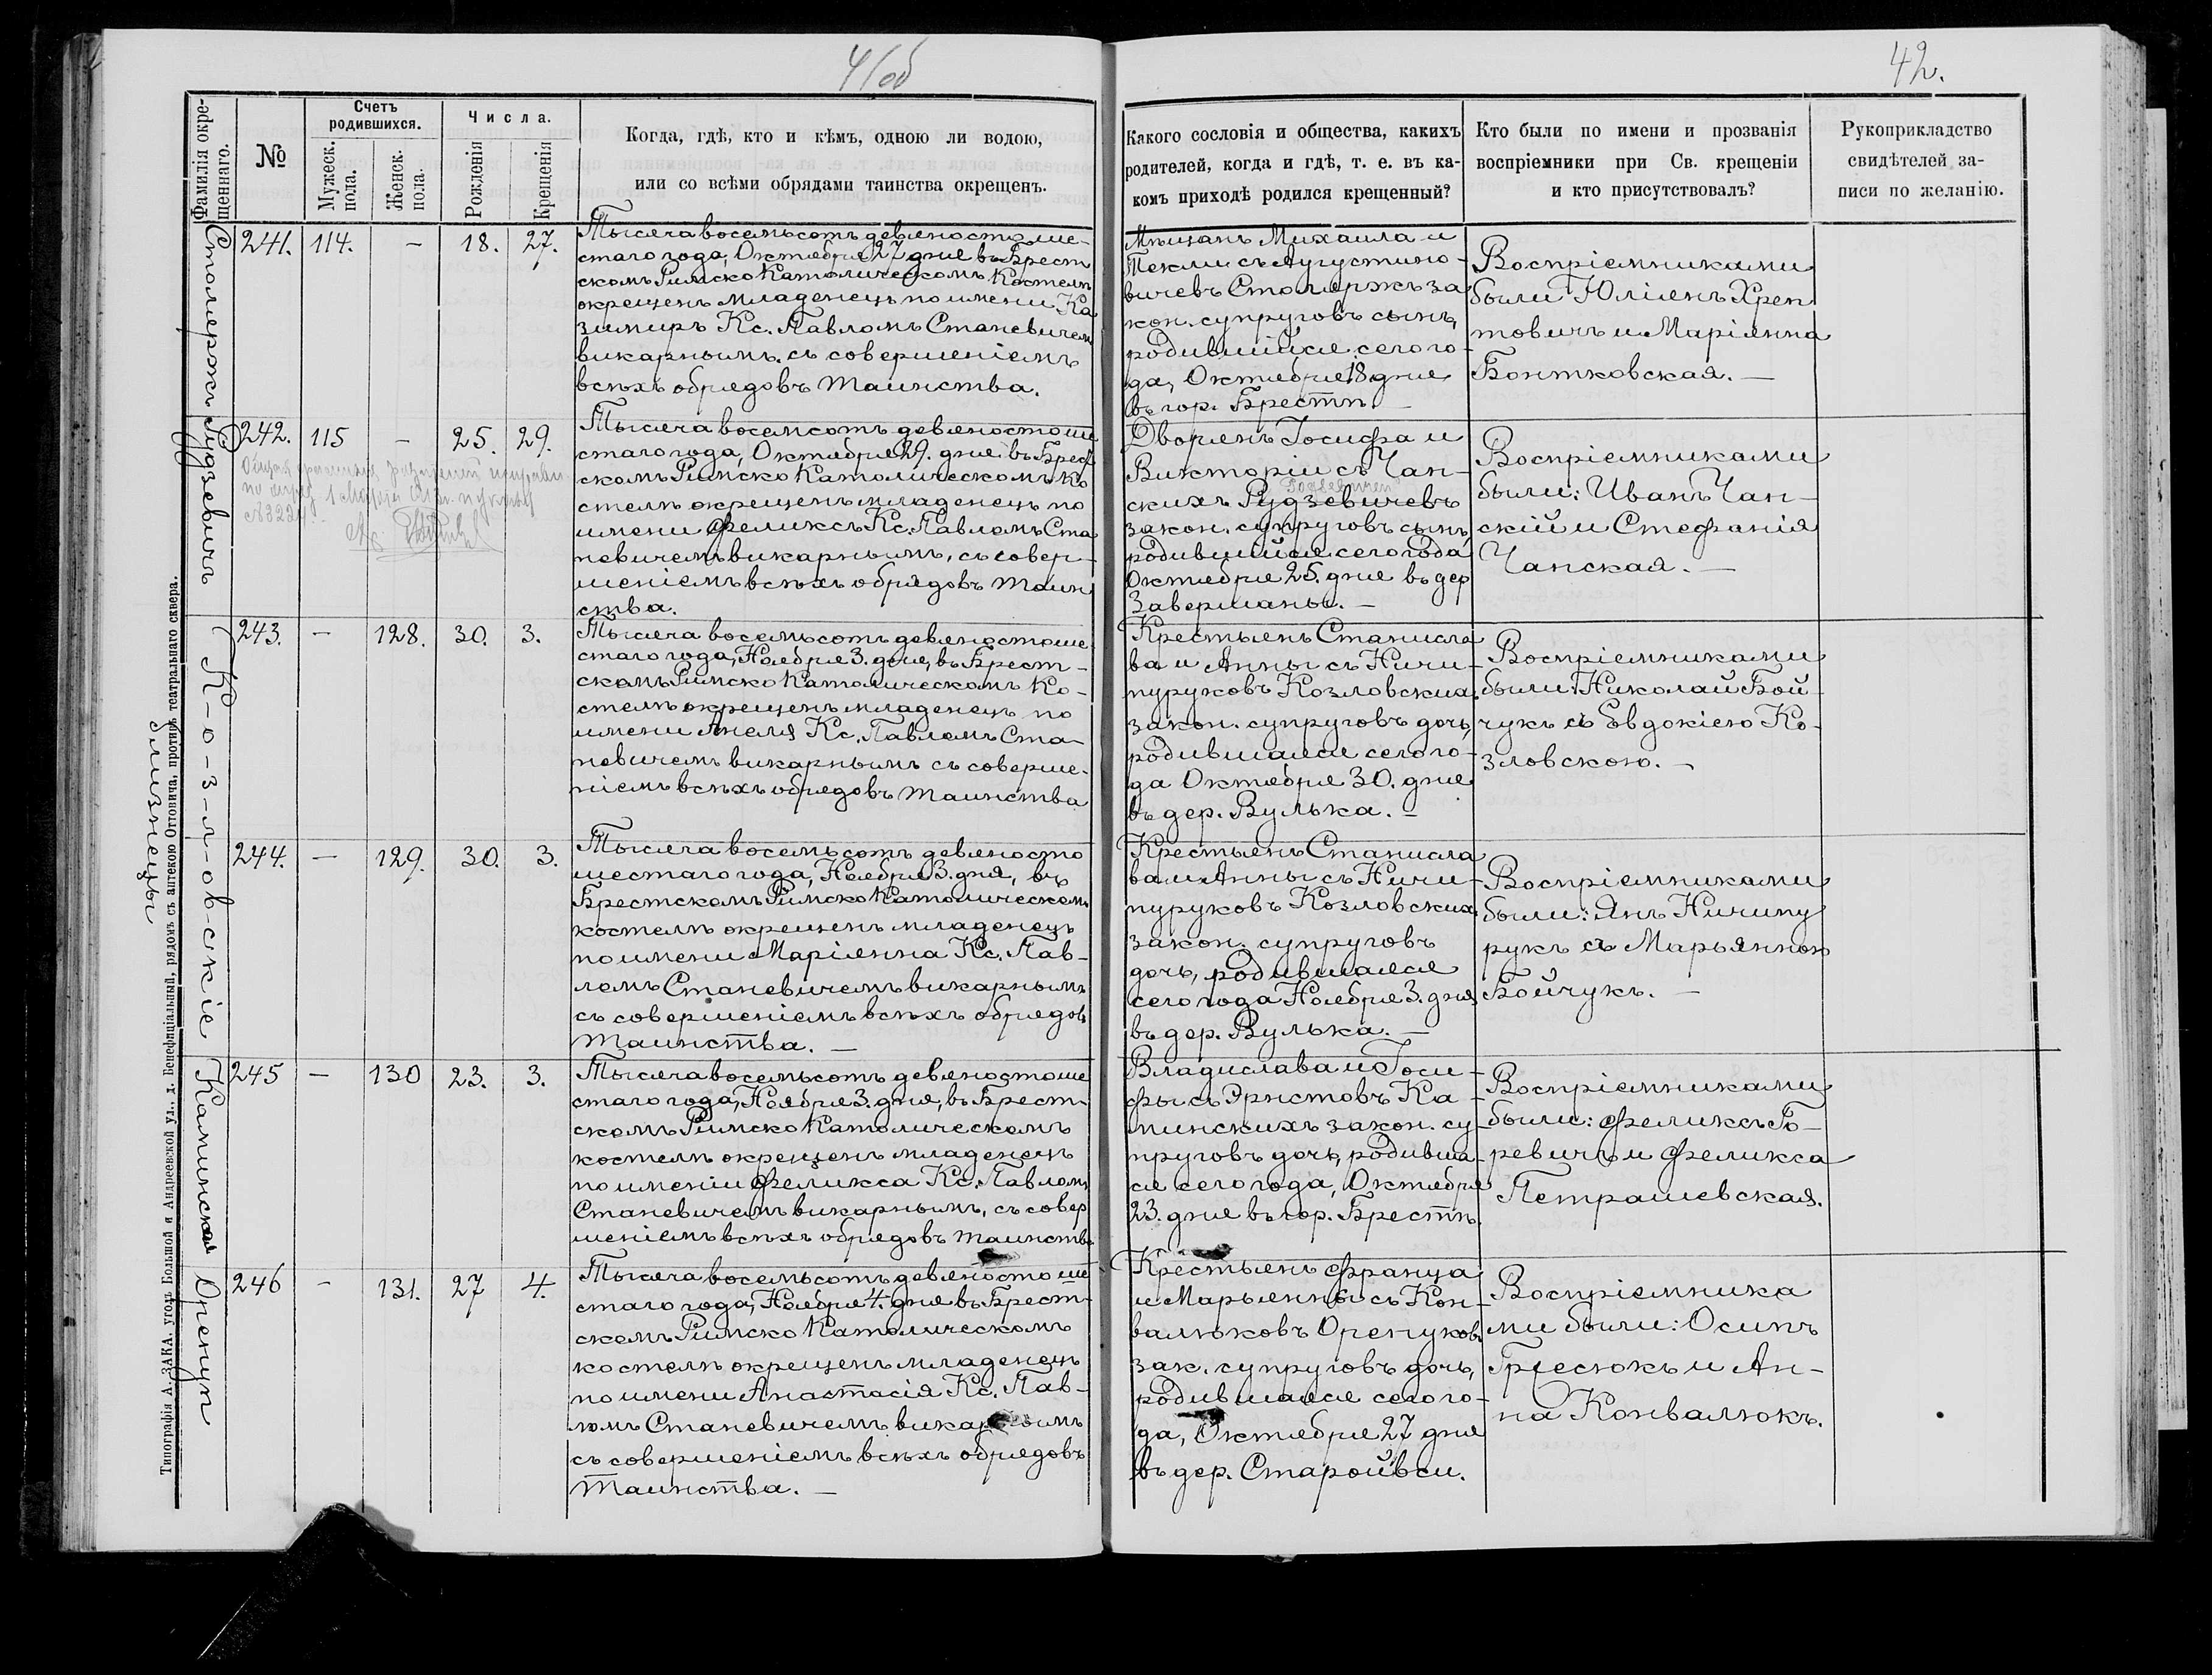 41об
42.
Фамилія окрещеннаго.
№
Счетъ родившихся.
Мужеск. пола.
Женск. пола.
Числа.
Рожденія
Крещенія
Когда, гдѣ, кто и кѣмъ, одною ли водою,
или со всѣми обрядами таинства окрещенъ.
Какого сословія и общества, какихъ
родителей, когда и гдѣ, т. е. въ ка-
комъ приходѣ родился крещенный?
Кто были по имени и прозванія
воспріемники при Св. крещеніи
и кто присутствовалъ?
Рукоприкладство
свидѣтелей за-
писи по желанію.
Столержъ
241. 114. – 18. 27.
Тысяча восемьсотъ девяносто ше-
стаго года, Октября 27 дня въ Брест
скомъ Римско Католическомъ Костелѣ
окрещенъ младенецъ по имени Ка
зимиръ Кс. Павломъ Станевичемъ
викарнымъ, съ совершеніемъ
всѣхъ обрядовъ таинства.
Мѣщанъ Михаила и
Текли съ Августино-
вичевъ Столержъ за
кон. супруговъ сынъ,
родившійся сего го-
да, Октября 18 дня
въ гор. Брестѣ. –
Воспріемниками
были Юліанъ Хреп
товичъ и Маріянна
Бонтковская. –
Рудзевичъ
242. 115 – 25. 29.
Тысяча восемсотъ девяносто ше
стаго года, Октября 29. дня въ Брест
скомъ Римско Католическомъ Ко
стелѣ окрещенъ младенецъ по
имени Феликсъ Кс. Павломъ Ста
невичемъ викарнымъ, съ совер-
шеніемъ всѣхъ обрядовъ таин
ства.
Дворянъ Іосифа и
Викторіи съ Чан-
скихъ Рудзевичевъ
закон. супруговъ сынъ,
родившійся сего года
Октября 25. дня въ дер
Завершаны. –
Воспріемниками
были: Иванъ Чан-
скій и Стефанія
Чанская. –
К-о-з-л-ов-скіе
близнецы
243. – 128. 30. 3.
Тысяча восемьсотъ девяносто ше
стаго года, Ноября 3. дня, въ Брест-
скомъ Римско Католическомъ Ко-
стелѣ окрещенъ младенецъ по
имени Анеля Кс. Павломъ Ста-
невичемъ викарнымъ съ соверше-
ніемъ всѣхъ обрядовъ таинства
Крестьянъ Станисла
ва и Анны съ Ничи-
пуруковъ Козловскихъ
закон. супруговъ дочь,
родившаяся сего го-
да Октября 30. дня
въ дер. Вулька. –
Воспріемниками
были: Николай Бой-
чукъ съ Евдокіею Ко-
зловскою. –
244. – 129. 30. 3.
Тысяча восемьсотъ девяносто
шестаго года, Ноября 3. дня, въ
Брестскомъ Римско Католическомъ
костелѣ окрещенъ младенецъ
по имени Маріянна Кс. Пав-
ломъ Станевичемъ викарнымъ
съ совершеніемъ всѣхъ обрядовъ
таинства. –
Крестьянъ Станисла
ва и Анны съ Ничи-
пуруковъ Козловскихъ
закон. супруговъ
дочь, родившаяся
сего года Ноября 3. дня
въ дер. Вулька. –
Воспріемниками
были: Янъ Ничипу
рукъ съ Марьянною
Бойчукъ. –
Каминская
245 – 130 23. 3.
Тысяча восемьсотъ девяносто ше
стаго года, Ноября 3. дня, въ Брест-
скомъ Римско Католическомъ
костелѣ окрещенъ младенецъ
по имени Феликса Кс. Павломъ
Станевичемъ викарнымъ, съ совер
шеніемъ всѣхъ обрядовъ таинства
Владислава и Іоси-
фы съ Эристовъ Ка-
минскихъ закон. су-
пруговъ дочь, родивша-
ся сего года, Октября
23. дня въ гор. Брестѣ.
Воспріемниками
были: Феликсъ Го-
ревичъ и Феликса
Петрашевская.
246 – 131. 27 4.
Тысяча восемьсотъ девяносто ше
стаго года, Ноября 4. дня въ Брест-
скомъ Римско Католическомъ
костелѣ окрещенъ младенецъ
по имени Анастасія Кс. Пав-
ломъ Станевичемъ викарнымъ
съ совершеніемъ всѣхъ обрядовъ
таинства. –
Крестьянъ Франца
и Марьянны съ Кон-
валюковъ
зак. супруговъ дочь,
родившаяся сего го-
да, Октября 27 дня
въ дер. Старойвси.
Воспріемника
ми были: Осипъ
Гресюкъ и Ан-
на Конвалюкъ.
Типографія А. ЗАКА. уголъ Большой и Андреевской ул., д. Бенефиціальный, рядомъ съ аптекою Оттовича, противъ театральнаго сквера.